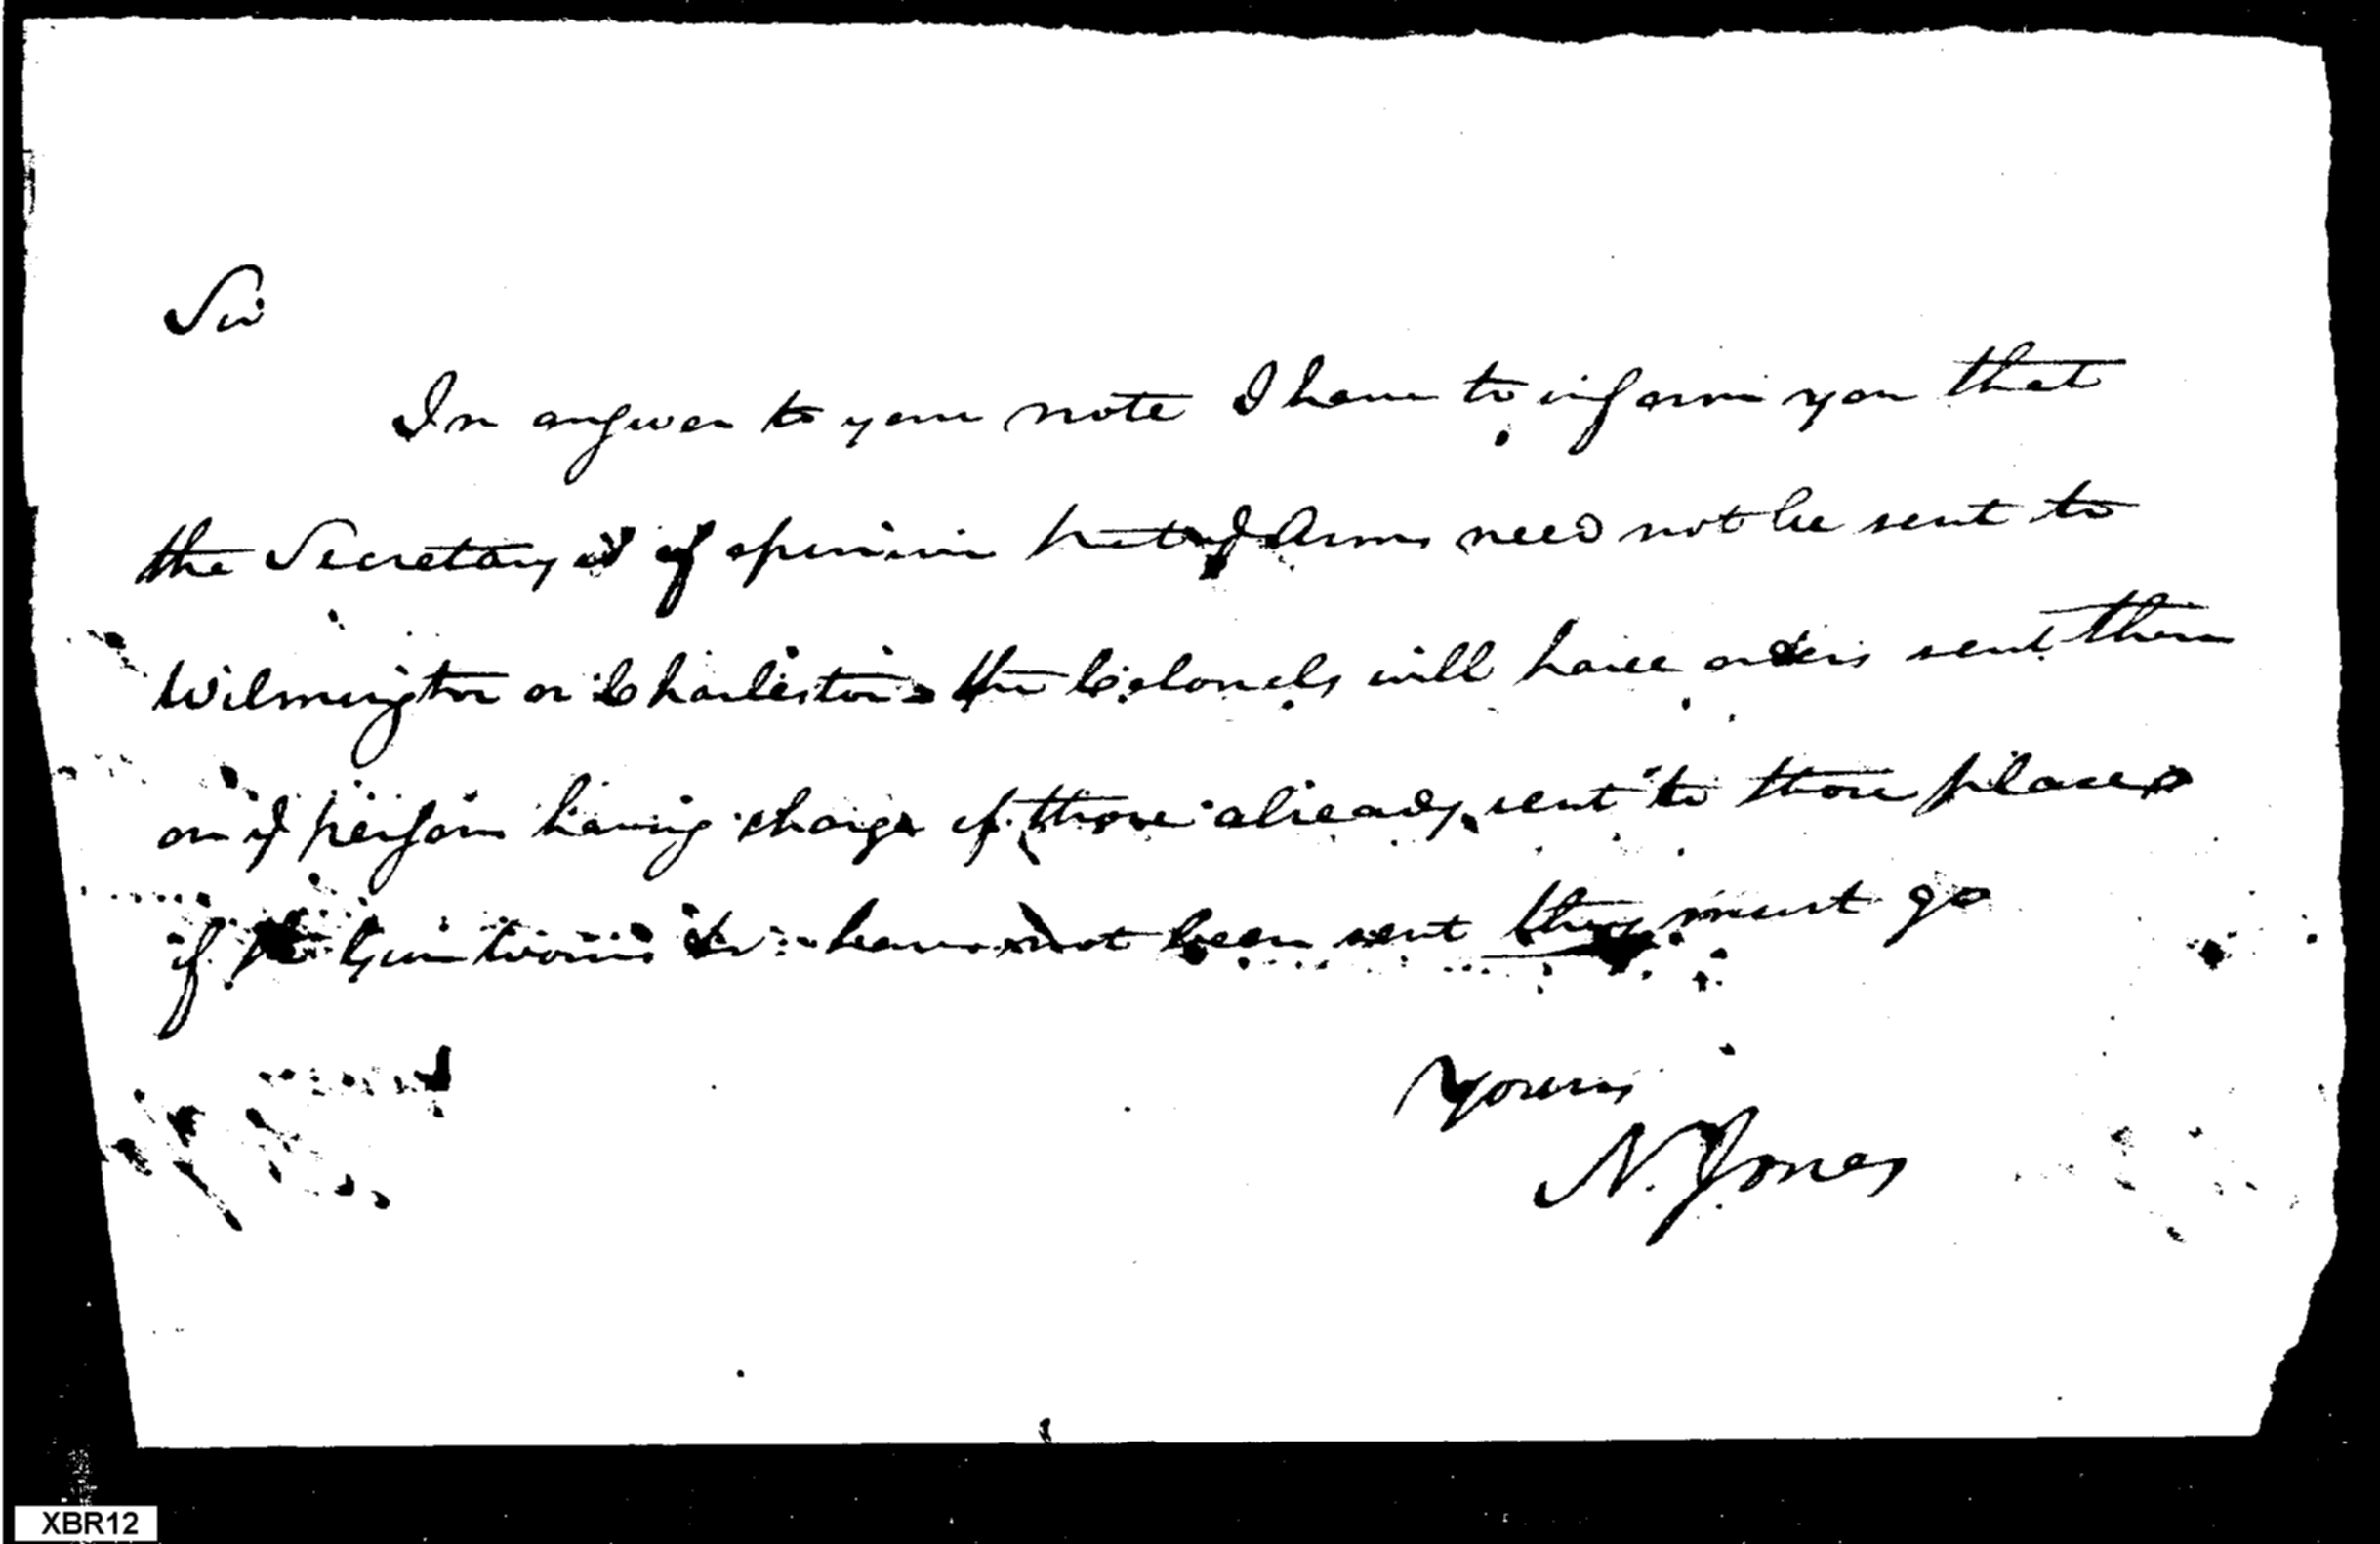 Sir
In answer to your note I have to inform you that
the Secretary is of opinion that Arms need not be sent to
Wilmington or Charleston the Colonels will have orders sent them
on person having charge of those already sent to those places
if Gun have not been sent they must go
Yours
N. Jones
XBR12